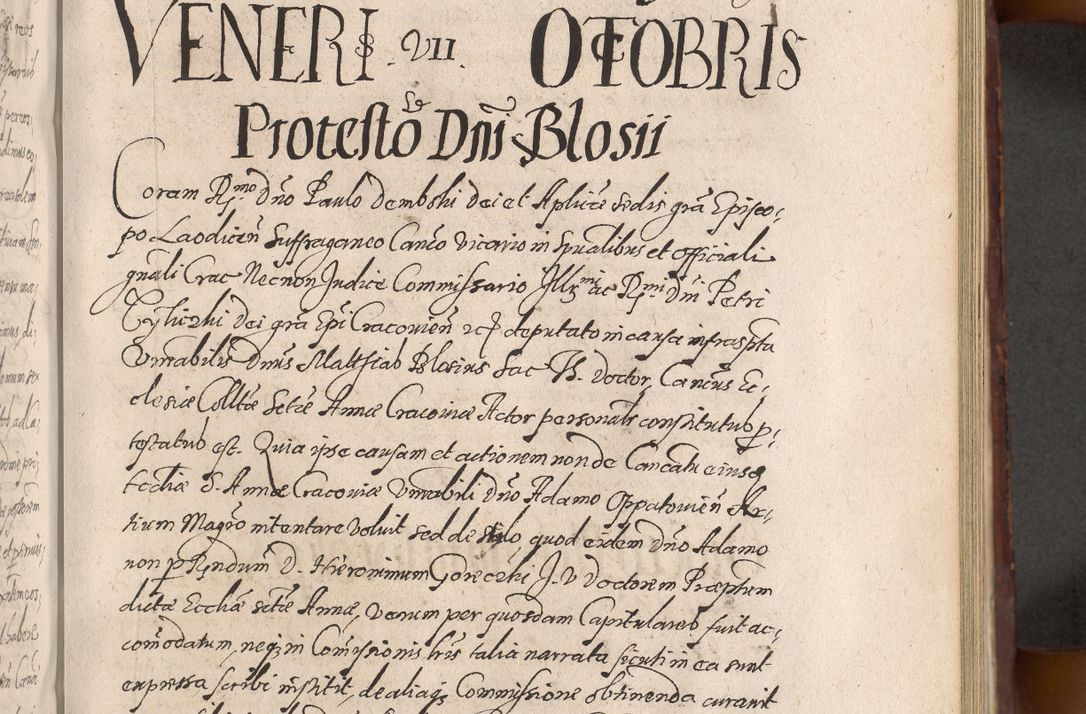 VENERIS VII OCTOBRIS
Protesto Dni Blosii
Coram Rmo Dno Paulo Dembski dei et Aplice sedis gra Episco,
po Laodicen Suffraganeo Canco Vicario in Spualibus et officiali
gnali Crac Necnon Judice Commissario Illmi ac Rmi Dni Petri
Tyliczki Dei gra Epi Cracovien deputato in causa infraspta
Vnrabilis Dnus Matthias Blosius Sac Th. Doctor, Cancus Ec,
clesiæ Colltæ Sctæ Annæ Cracoviæ Actor personalr constitutus p
testatus est. Quia ipse causam et actionem non de Cancatu eiusd
Eccliæ S. Annæ Cracoviæ Vnrabili Dno Adamo Oppatovien Ar,
tium Magro intentare voluit sed de stilo, quod eidem Dno Adamo
non p Rndum D. Hieronimum Goreczki J. V Doctorem Præptm
dictæ Eccliæ sctæ Annæ, verum per quosdam Capitulares fuit ac,
comodatum, neq in Comissionis lris talia narrata sicuti in ea sunt
expressa scribi instit, de aliaq Commissione obtinenda curavit